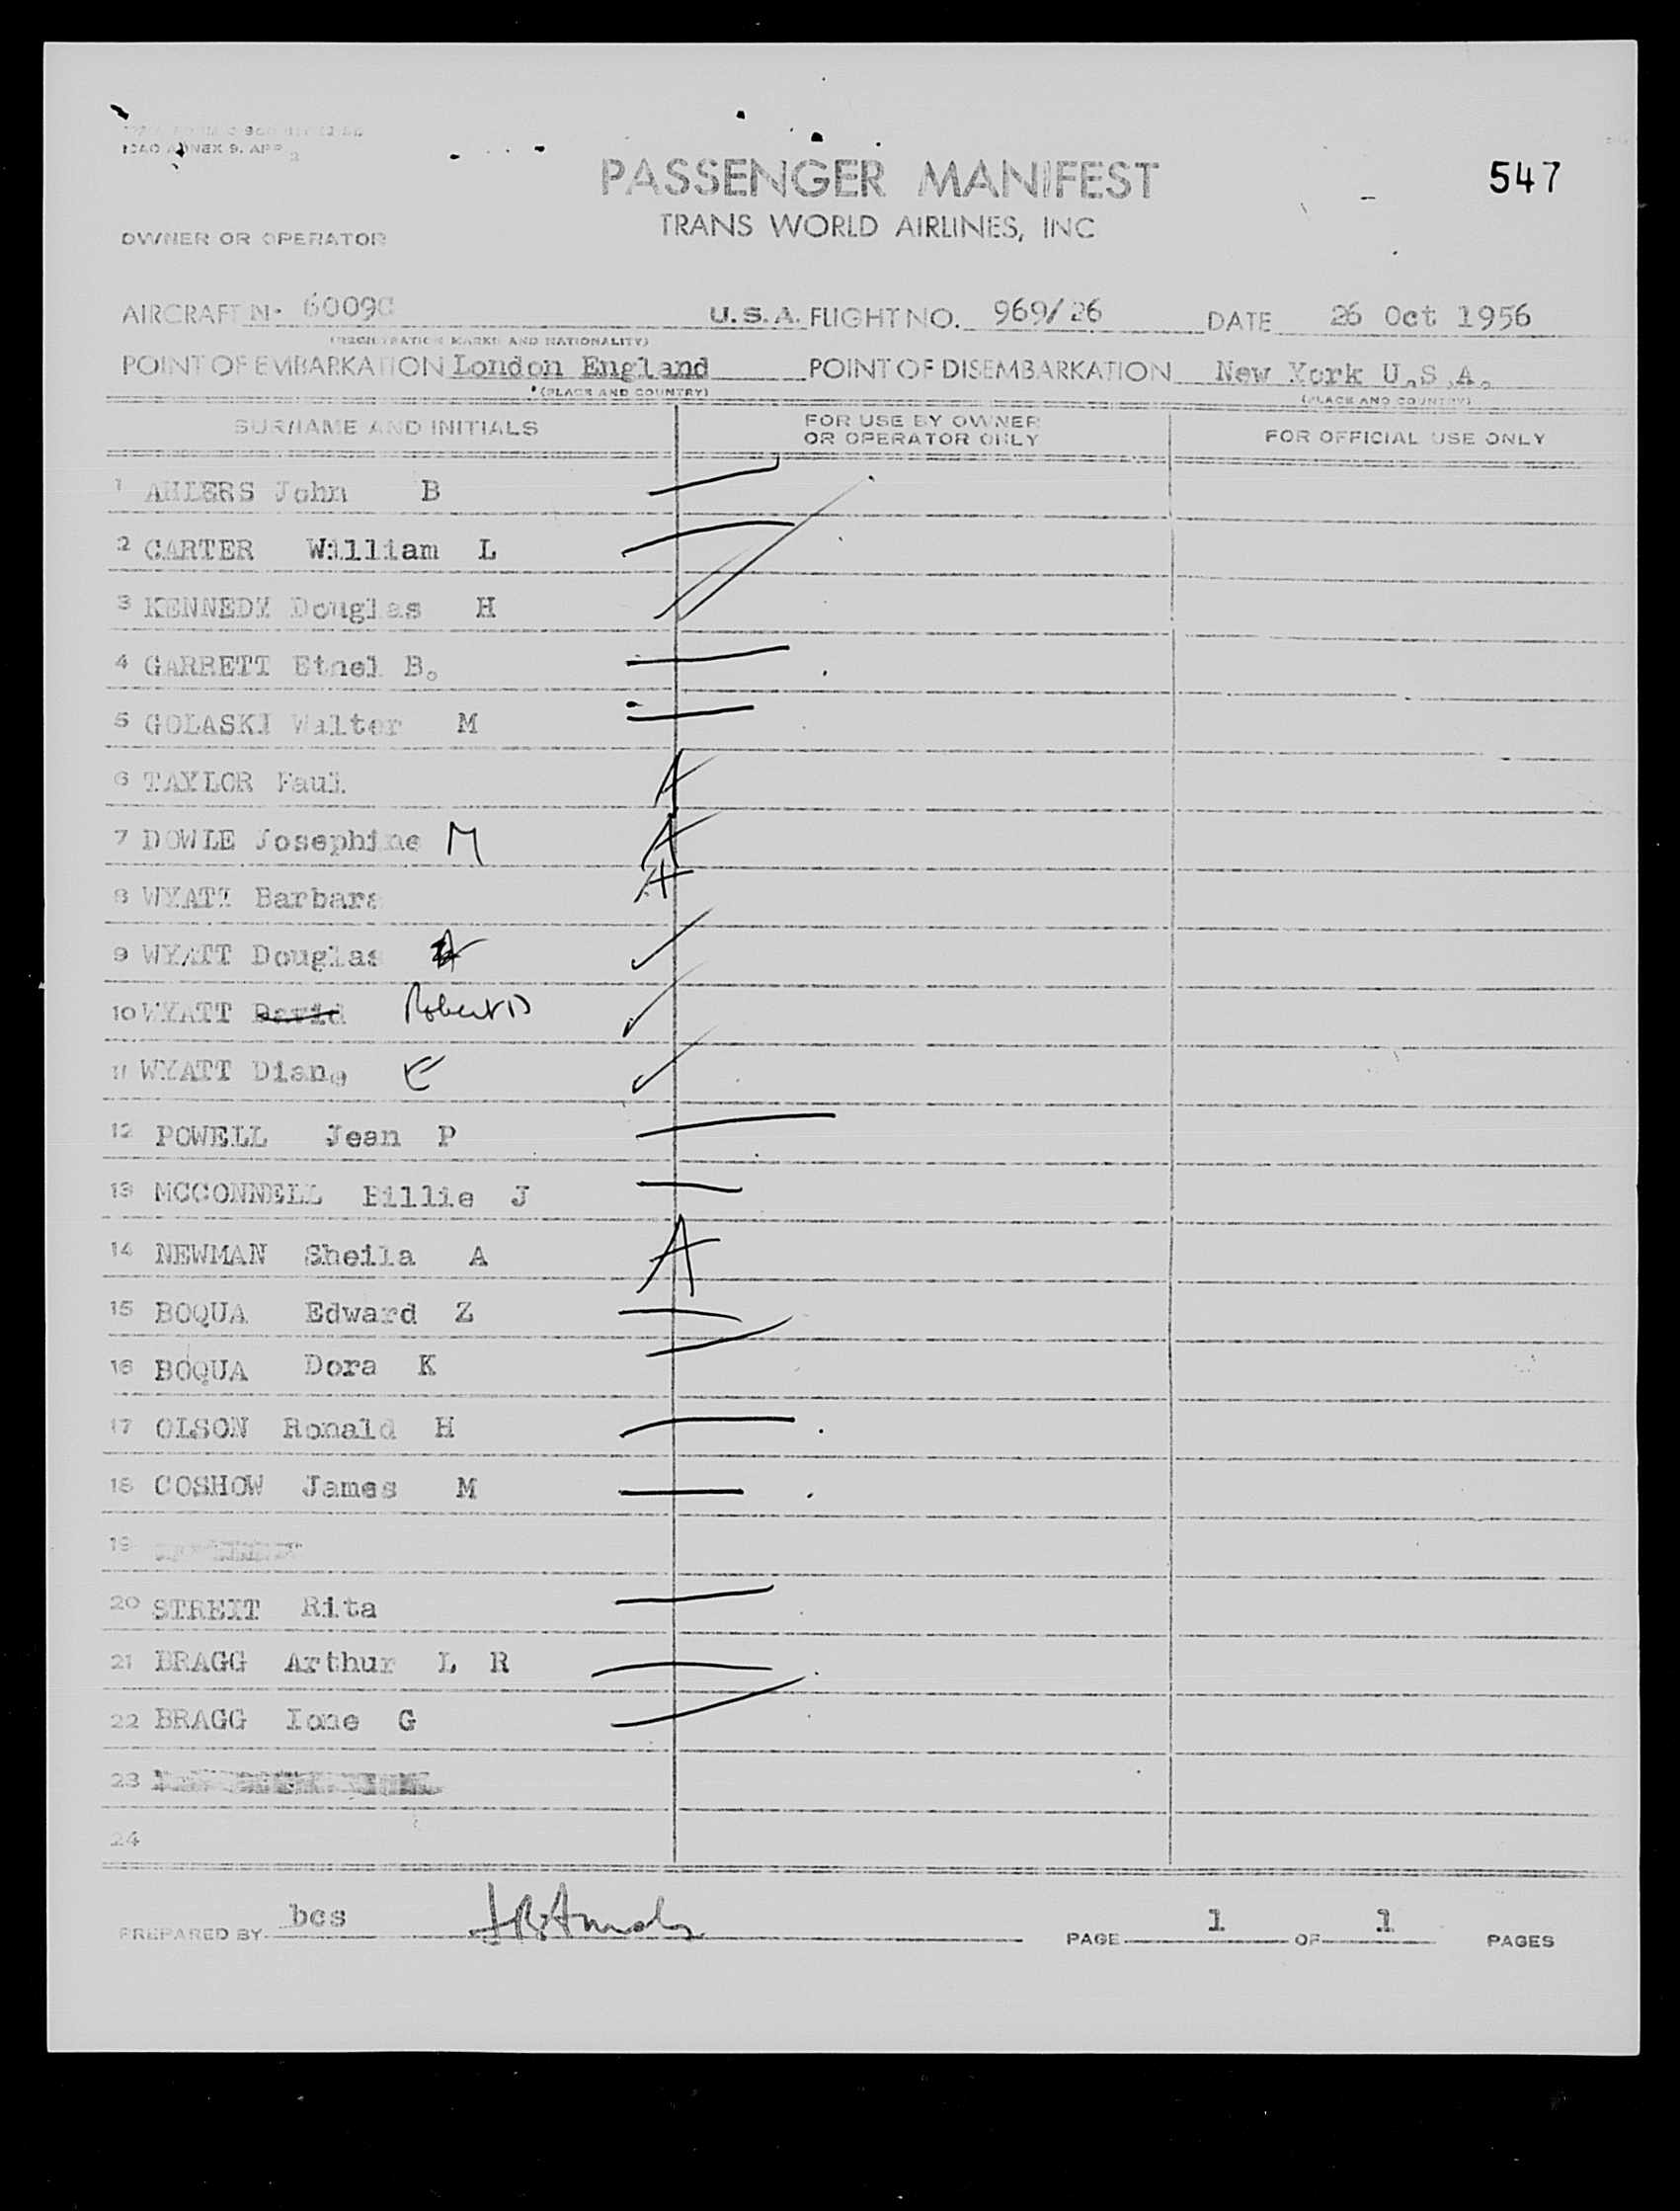 ICAO ANNEX 9. APP 2
PASSENGER MANIFEST
547
TRANS WORLD AIRLINES, INC
OWNER OR OPERATOR
AIRCRAFT No. 6009C U.S.A. FLIGHT NO. 969/26 DATE 26 Oct 1956
(REGISTRATION MARKS AND NATIONALITY)
POINT OF EMBARKATION London England POINT OF DISEMBARKATION New York U.S.A.
(PLACE AND COUNTRY) (PLACE AND COUNTRY)
SURNAME AND INITIALS FOR USE BY OWNER OR OPERATOR ONLY FOR OFFICIAL USE ONLY
1 AHLERS John B
2 CARTER William L
3 KENNEDY Douglas H
4 GARRETT Ethel B.
5 GOLASKI Walter M
6 TAYLOR Paul A
7 DOWLE Josephine M A
8 WYATT Barbara A
9 WYATT Douglas
10 WYATT David Robert D
11 WYATT Diane E
12 POWELL Jean P
13 MCCONNELL Billie J
14 NEWMAN Sheila A A
15 BOQUA Edward Z
16 BOQUA Dora K
17 OLSON Ronald H
18 COSHOW James M
19
20 STREIT Rita
21 BRAGG Arthur L R
22 BRAGG Ione G
23
24
PREPARED BY bcs PAGE 1 OF 1 PAGES